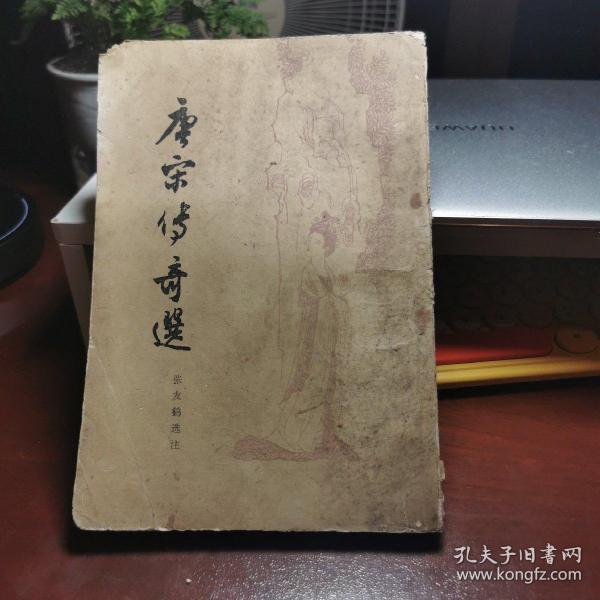 唐宋传奇選
张友鹤选注
HUAWEI
孔夫子旧書网
www.kongfz.com